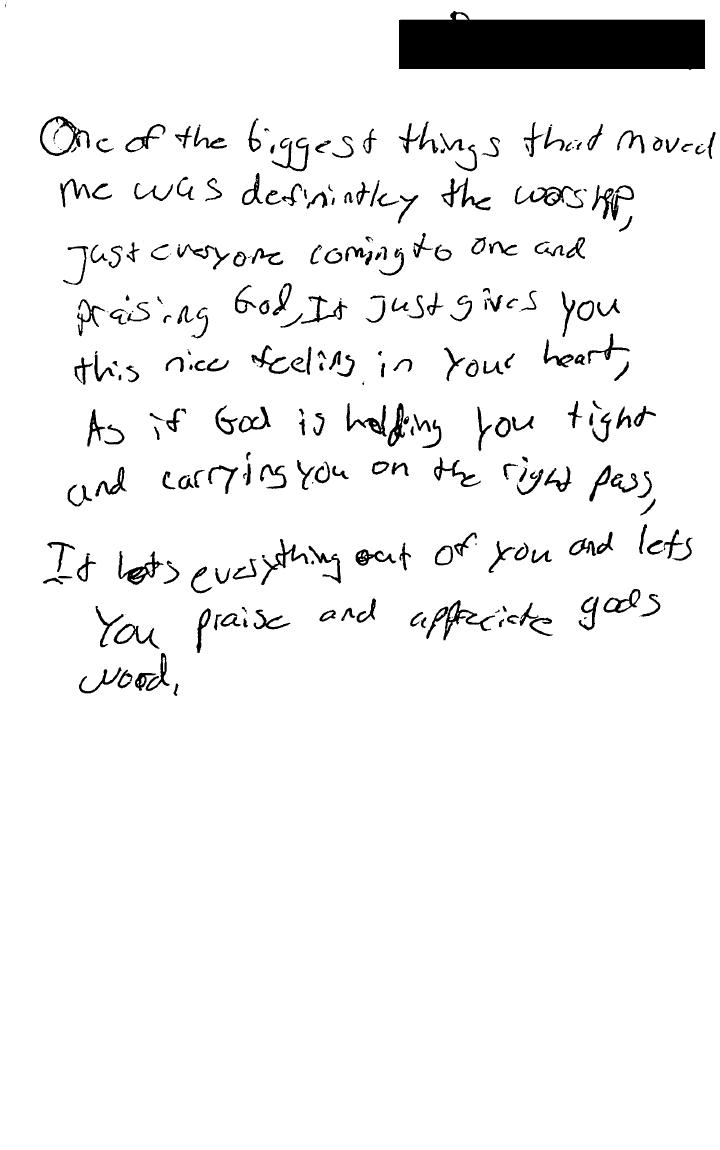 One of the biggest things that moved
me was definintley the worship,
just everyone coming to one and
praising God, It just gives you
this nice feeling in your heart,
As if God is holding you tight
and carrying you on the right pass,
It lets everything out of you and lets
you praise and appreciate gods
word,